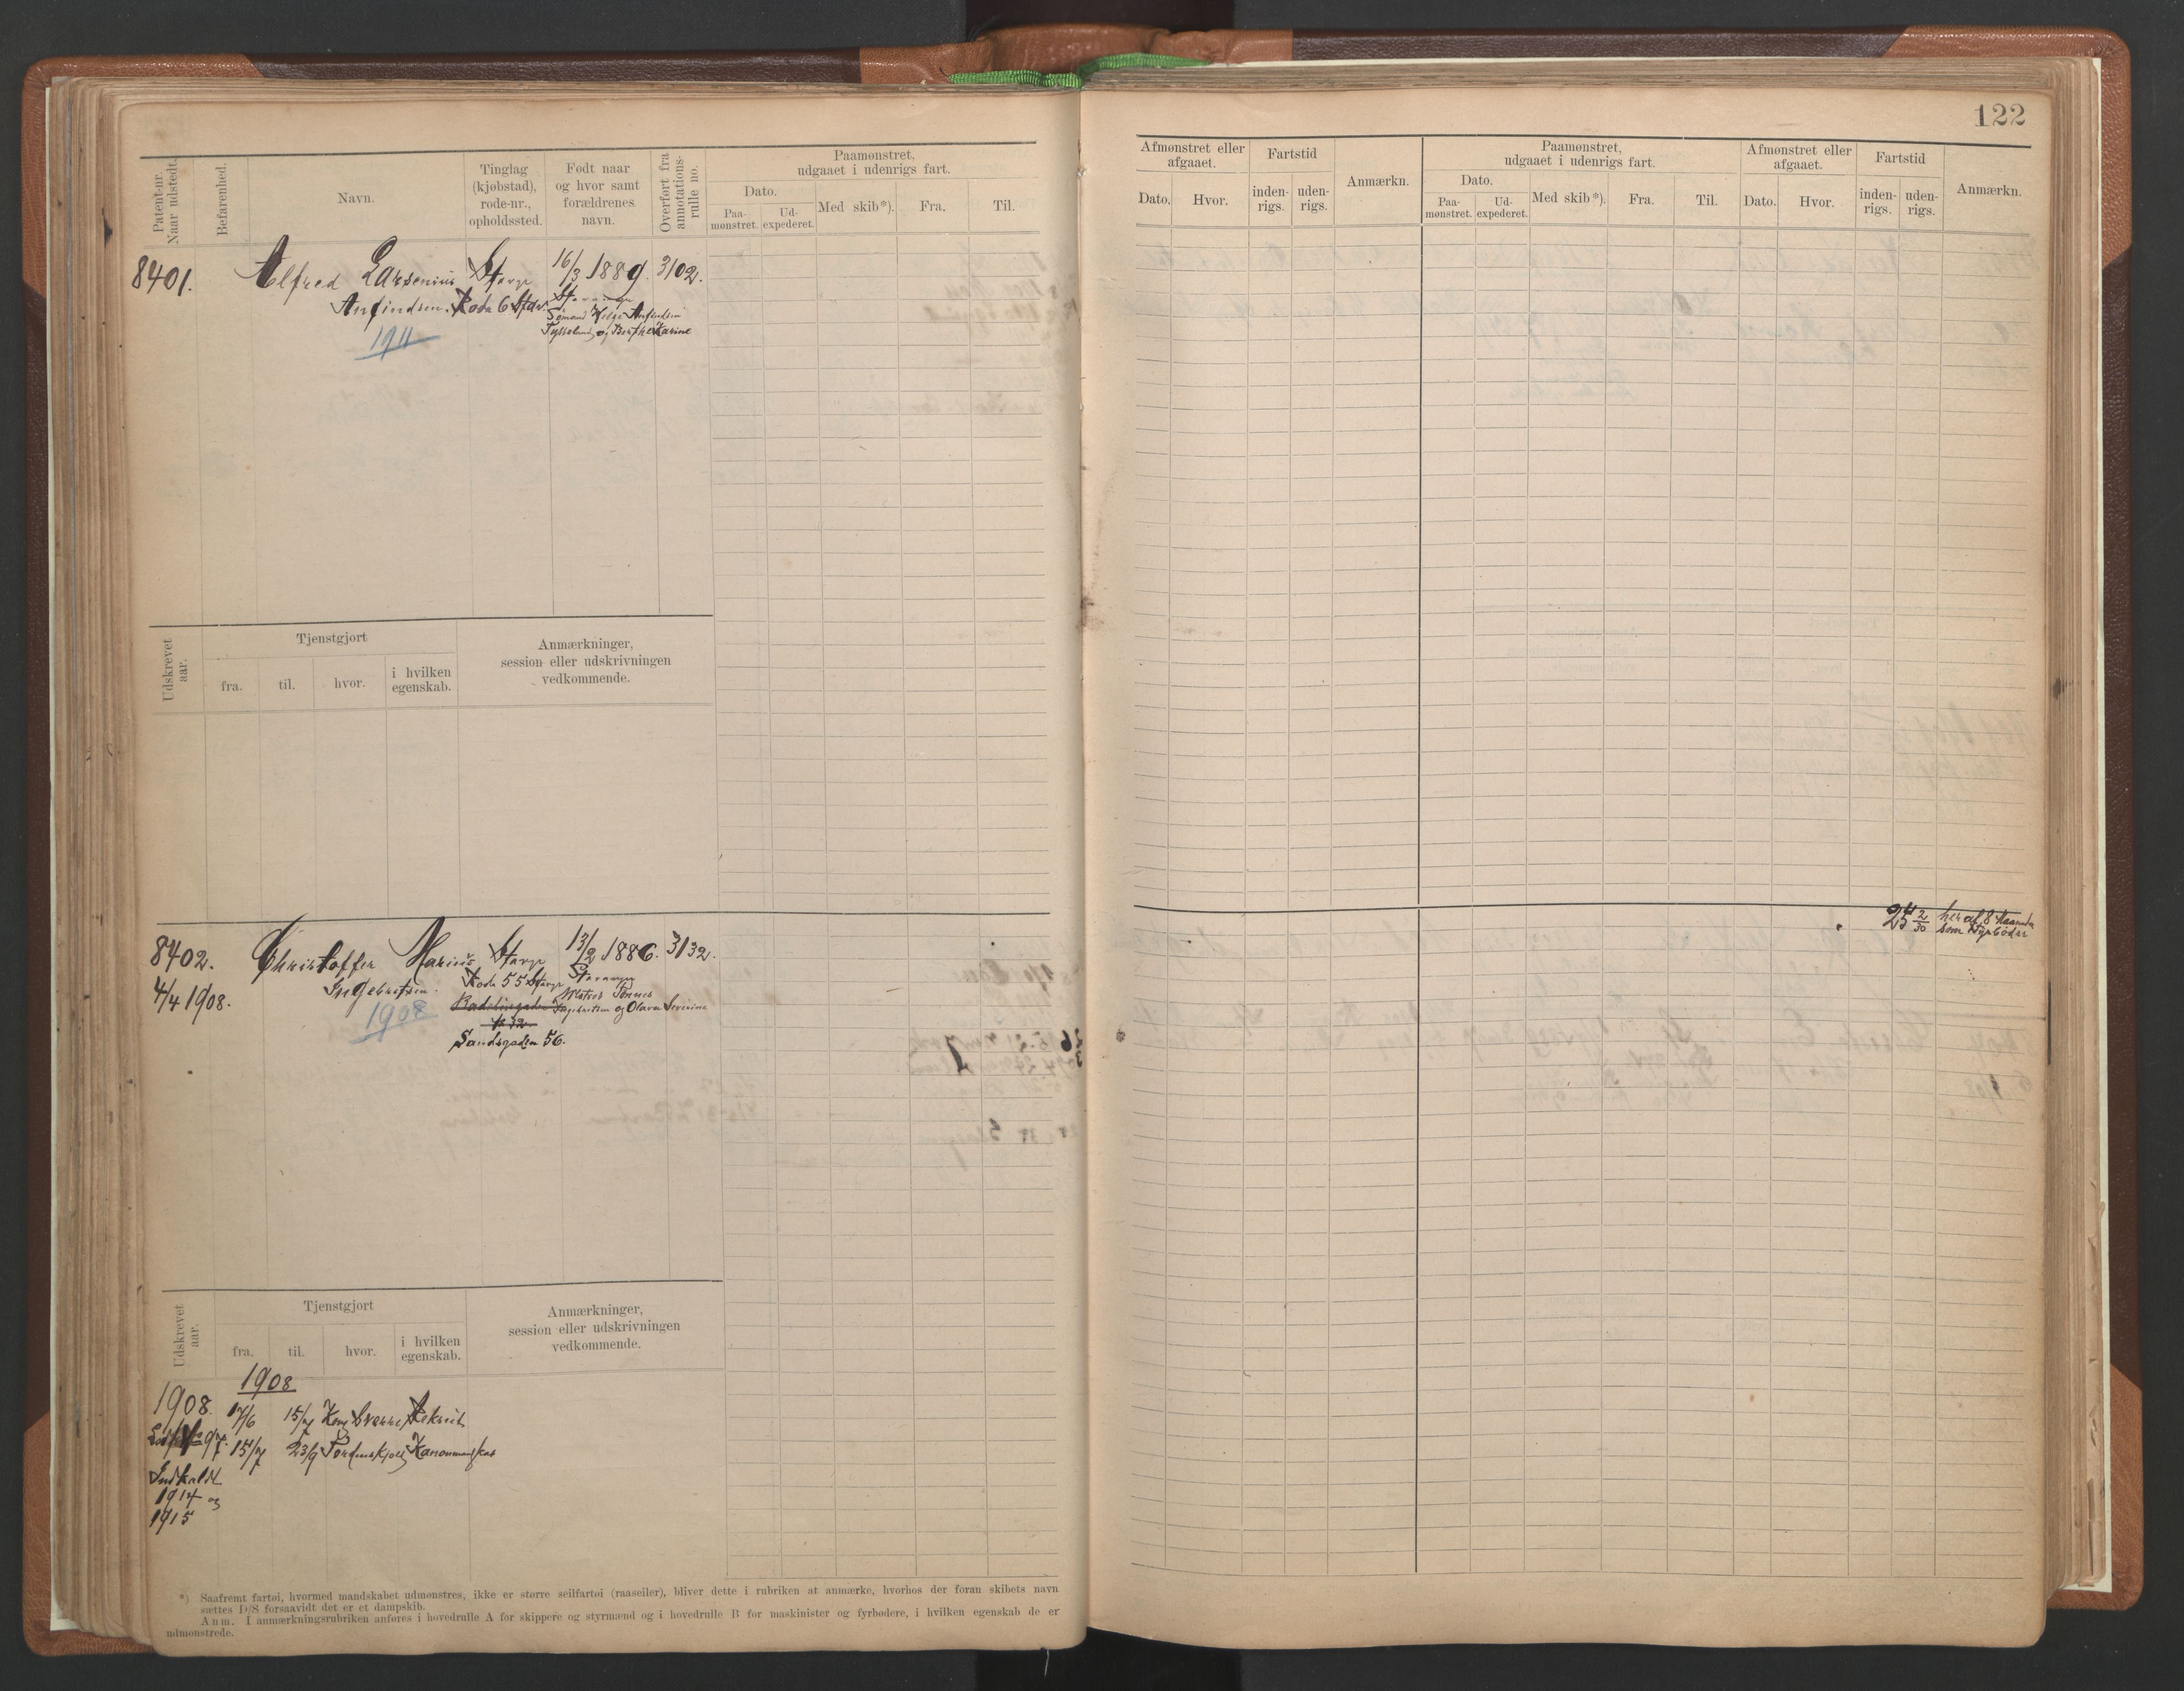 122
Patent-nr.
Naar udstedt.
Befarenhed.
Navn.
Tinglag
(kjøbstad),
rode-nr.,
opholdssted.
Født naar
og hvor samt
forældrenes
navn.
Overført fra
annotations-
rulle no.
Paamønstret,
udgaaet i udenrigs fart.
Dato.
Paa-
mønstret.
Ud-
expederet.
Med skib*).
Fra.
Til.
Afmønstret eller
afgaaet.
Dato.
Hvor.
Fartstid
inden-
rigs.
uden-
rigs.
Anmærkn.
Paamønstret,
udgaaet i udenrigs fart.
Dato.
Paa-
mønstret.
Ud-
expederet.
Med skib*).
Fra.
Til.
Afmønstret eller
afgaaet.
Dato.
Hvor.
Fartstid
inden-
rigs.
uden-
rigs.
Anmærkn.
8401. Alfred Larsenius Stavgr 16/3 1889. 3102.
Anfindsen. Rode 6 Stav. Stavanger
Sømand Helge Anfindsen
Tysseland og Berthe Karine
1911
Udskrevet
aar.
Tjenstgjort
fra.
til.
hvor.
i hvilken
egenskab.
Anmærkninger,
session eller udskrivningen
vedkommende.
8402. Christoffer Marius Stavgr 13/2 1886. 3132.
4/4 1908. Ingebretsen. Rode 55 Stavgr Stavanger
Matros Tønnes
Ingebretsen og Olava Severine
1908
Sandsgaden 56.
24 2/30 heraf 8 Maaneder
som Fyrbøder
Udskrevet
aar.
Tjenstgjort
fra.
til.
hvor.
i hvilken
egenskab.
Anmærkninger,
session eller udskrivningen
vedkommende.
1908
1908. 17/6 15/7 Kong Sverre Rekrut
15/7 23/9 Tordenskjold Kanonmandskab
Indkaldt
1914 og
1915
*) Saafremt fartøi, hvormed mandskabet udmønstres, ikke er større seilfartøi (raaseiler), bliver dette i rubriken at anmærke, hvorhos der foran skibets navn
sættes D/S forsaavidt det er et dampskib.
Anm. I anmærkningsrubriken anføres i hovedrulle A for skippere og styrmænd og i hovedrulle B for maskinister og fyrbødere, i hvilken egenskab de er
udmønstrede.